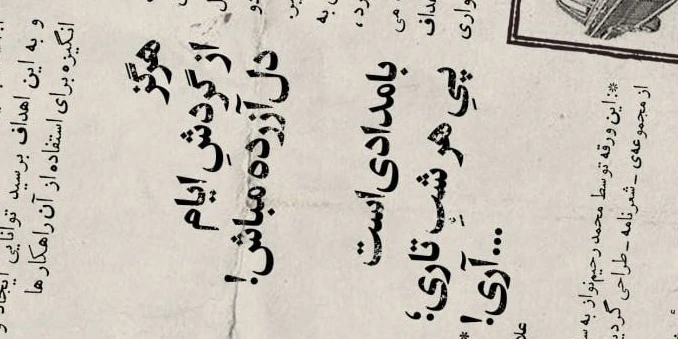 و به این اهداف برسید توانایی ایجاد و
انگیزه برای استفاده از آن راهکارها
هرگز
از گردشِ ایام
دل آزرده مباش!
بامدادی است
پیِ هر شبِ تاری؛
...آری!
*:این ورقه توسط محمد رحیم‌نواز به
از مجموعه‌ی ـ شعرنامه ـ طراحی